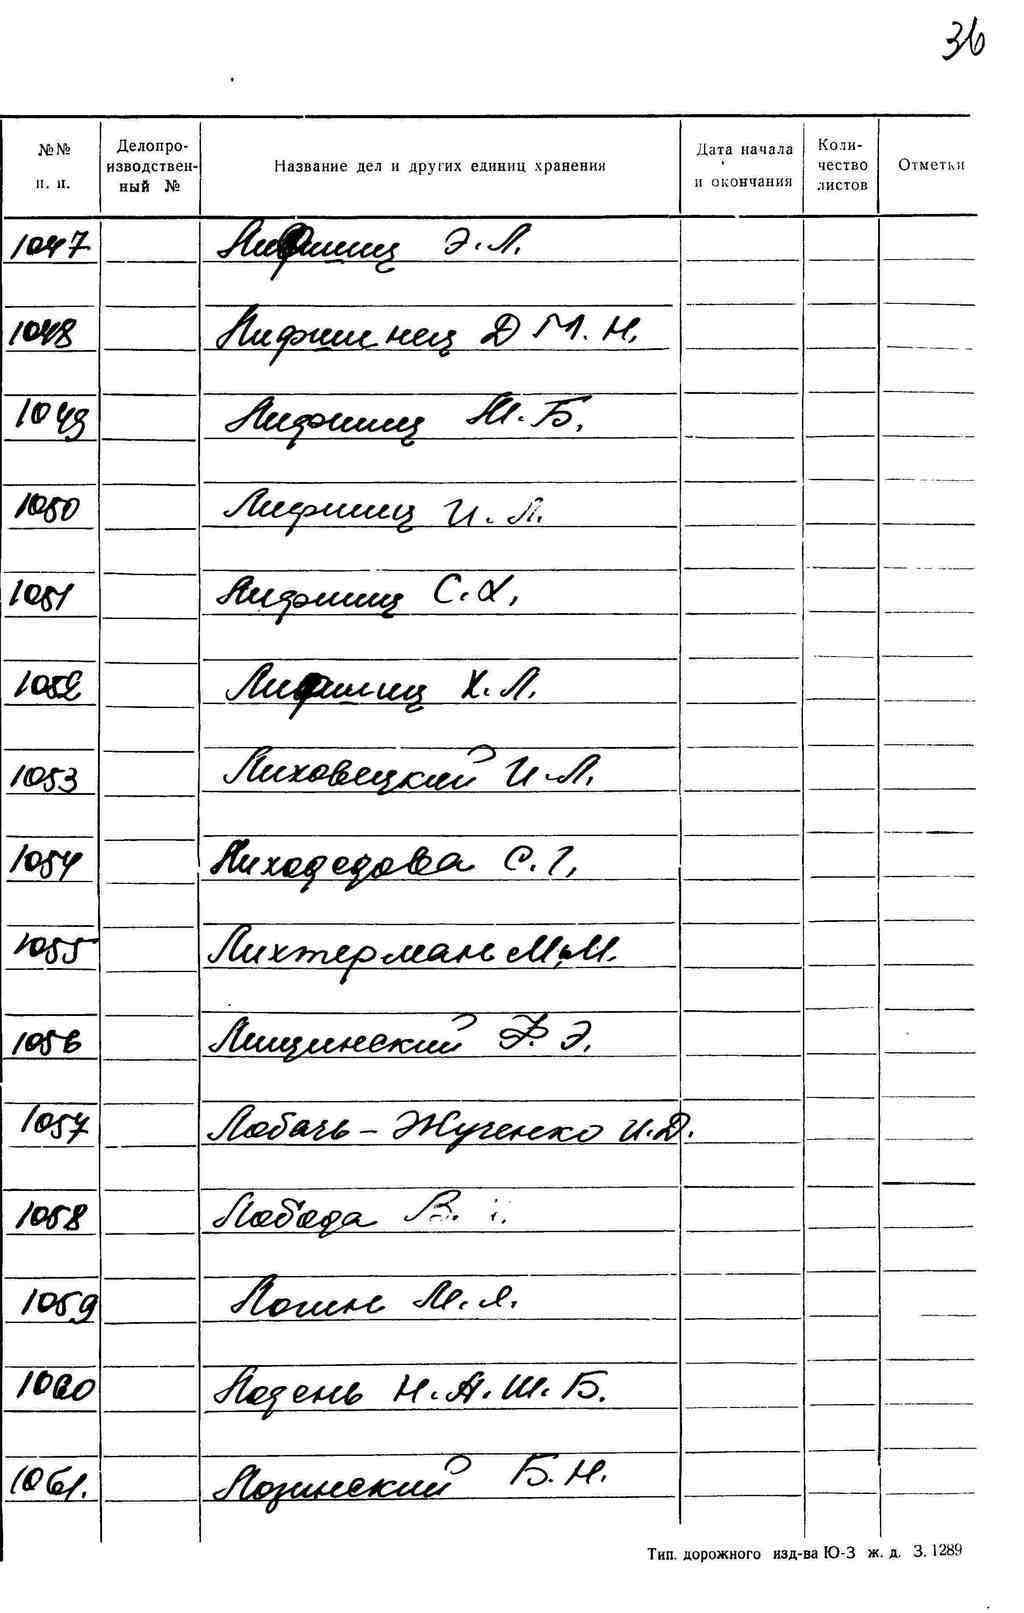 36
№№ п. п.
Делопро-
изводствен-
ный №
Название дел и других единиц хранения
Дата начала
и окончания
Коли-
чество
листов
Отметки
1047 Лифшиц Э.Л.
1048 Лифшинец Д М. Н.
1049 Лифшиц М. Б.
1050 Лифшиц И. Л.
1051 Лифшиц С. Х.
1052 Лифшиц Х. Л.
1053 Лиховецкий И. Л.
1054 Лиходедова С. Г.
1055 Лихтерман М. М.
1056 Лищинский Ф. Э.
1057 Лобачь - Жученко И. Д.
1058 Лобода В.
1059 Логин М. Я.
1060 Лодень Н. А. Ш. Б.
1061. Лозинский Б. Н.
Тип. дорожного изд-ва Ю-З ж. д. З. 1289